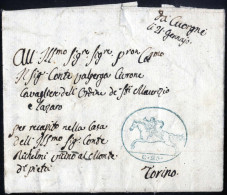 da' Cuorgnè
li 21 Gennaio
All' Illmo Sigre Sigre Pron Colmo
Il Sigr Conte Valperga Civrone
Cavagliere dell' Ordine de' Sti Maurizio
e Lazaro
per recapito nella Casa
dell' Illmo Sigr Conte
vicino al Monte
di pietà
Torino